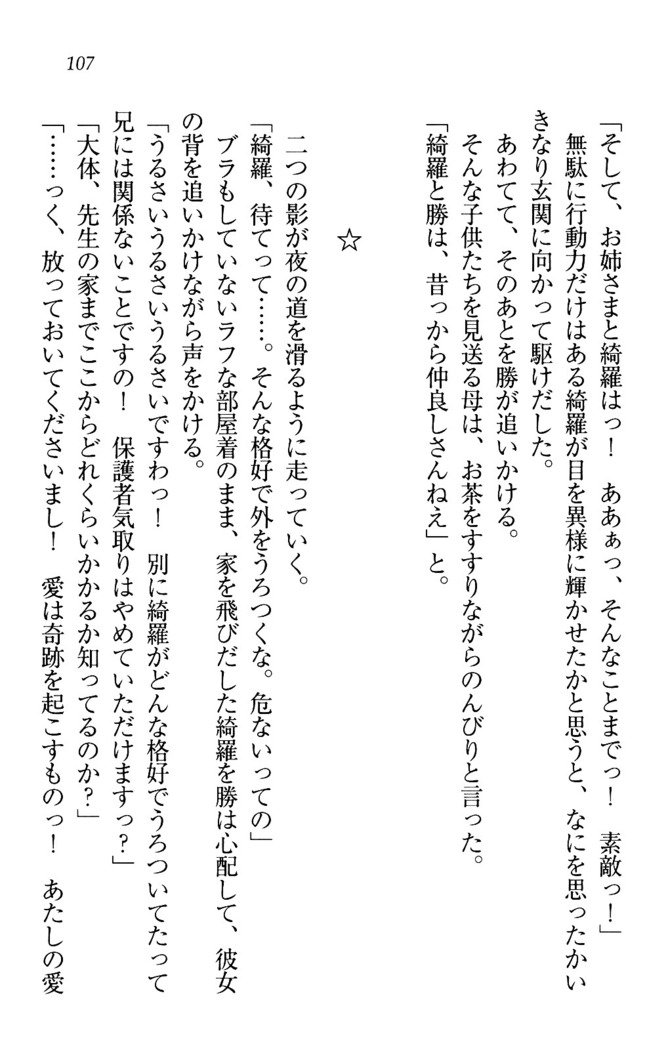 107
「そして、お姉さまと綺羅はっ！　ああぁっ、そんなことまでっ！　素敵っ！」
　無駄に行動力だけはある綺羅が目を異様に輝かせたかと思うと、なにを思ったかい
きなり玄関に向かって駆けだした。
　あわてて、そのあとを勝が追いかける。
　そんな子供たちを見送る母は、お茶をすすりながらのんびりと言った。
「綺羅と勝は、昔っから仲良しさんねえ」と。
☆
　二つの影が夜の道を滑るように走っていく。
「綺羅、待てって……。そんな格好で外をうろつくな。危ないっての」
　ブラもしていないラフな部屋着のまま、家を飛びだした綺羅を勝は心配して、彼女
の背を追いかけながら声をかける。
「うるさいうるさいうるさいですわっ！　別に綺羅がどんな格好でうろついてたって
兄には関係ないことですの！　保護者気取りはやめていただけますっ？」
「大体、先生の家までここからどれくらいかかるか知ってるのか？」
「……っく、放っておいてくださいまし！　愛は奇跡を起こすものっ！　あたしの愛